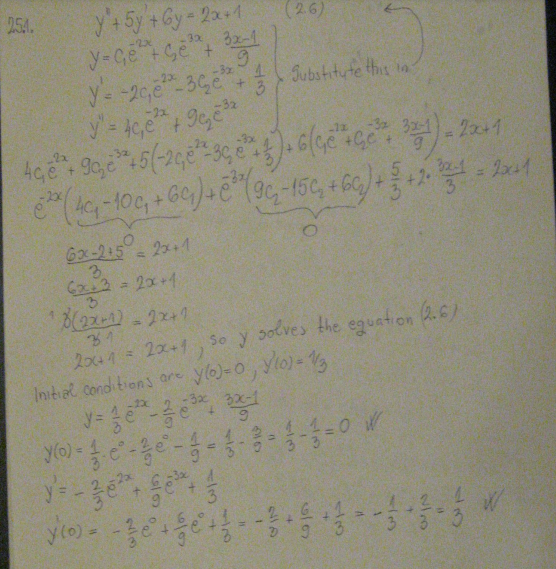 251. y''+5y'+6y = 2x+1 (2.6)
y = c₁e^{-2x} + c₂e^{-3x} + \frac{3x-1}{9}
y' = -2c₁e^{-2x} - 3c₂e^{-3x} + \frac{1}{3} } Substitute this in
y'' = 4c₁e^{-2x} + 9c₂e^{-3x}
4c₁e^{-2x} + 9c₂e^{-3x} + 5(-2c₁e^{-2x} - 3c₂e^{-3x} + \frac{1}{3}) + 6(c₁e^{-2x} + c₂e^{-3x} + \frac{3x-1}{9}) = 2x+1
e^{-2x}(4c₁ - 10c₁ + 6c₁) + e^{-3x}(9c₂ - 15c₂ + 6c₂) + \frac{5}{3} + 2·\frac{3x-1}{3} = 2x+1
0 0
\frac{6x-2+5}{3} = 2x+1
\frac{6x+3}{3} = 2x+1
\frac{3(2x+1)}{3} = 2x+1
2x+1 = 2x+1, so y solves the equation (2.6)
Initial conditions are y(0)=0, y'(0)=1/3
y = \frac{1}{3}e^{-2x} - \frac{2}{9}e^{-3x} + \frac{3x-1}{9}
y(0) = \frac{1}{3}·e⁰ - \frac{2}{9}e⁰ - \frac{1}{9} = \frac{1}{3} - \frac{3}{9} = \frac{1}{3} - \frac{1}{3} = 0
y' = -\frac{2}{3}e^{-2x} + \frac{6}{9}e^{-3x} + \frac{1}{3}
y'(0) = -\frac{2}{3}e⁰ + \frac{6}{9}e⁰ + \frac{1}{3} = -\frac{2}{3} + \frac{6}{9} + \frac{1}{3} = -\frac{1}{3} + \frac{2}{3} = \frac{1}{3}